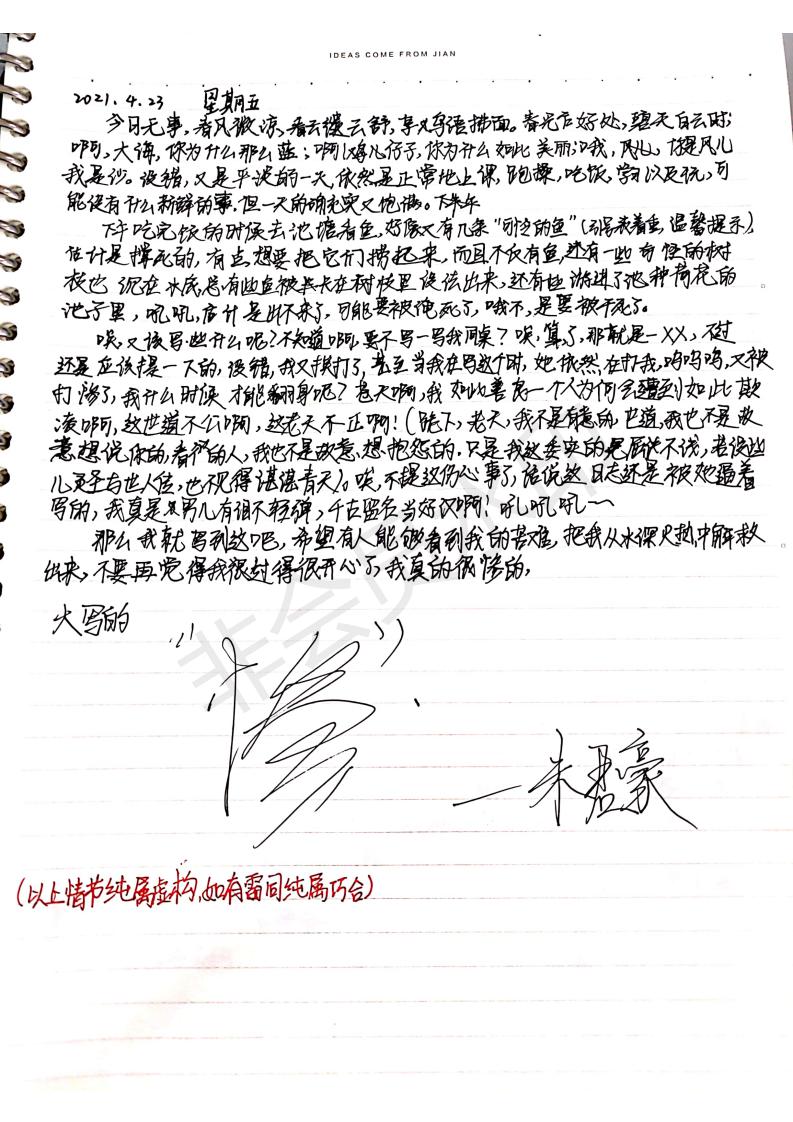 IDEAS COME FROM JIAN
2021.4.23 星期五
今日无事,春风微凉,看云缕云舒,草叉鸟语拂面。春光店好处,碧天白云时;
啊,大海,你为什么那么蓝;啊,鸡儿仔子,你为什么如此美丽;哦,风儿,性是风儿
我是沙。没错,又是平淡的一天,依然是正常地上课,跑操,吃饭,学习以及玩,可
能没有什么新鲜的事,但一天的确充实又饱满。
下午吃完饭的时候去池塘看鱼,好像又有几条"可冷的鱼"(
估计是撑死的,有点想要把它们捞起来,而且不仅有鱼,还有一些奇怪的树
枝也沉在水底,总有些鱼被卡在树枝里没法出来,还有些游进了池种荷花的
池子里,吼吼,估计是出不来了,可能要被饱死了,哦不,是要被干死了。
唉,又该写些什么呢?不知道啊,要不写一写我同桌?唉,算了,那就是一XX,不过
还是应该提一下的,没错,我又挨打了,甚至当我在写这个时,她依然在打我,呜呜呜,又被
打惨了,我什么时候才能翻身呢?苍天啊,我如此善良一个人为何会遭到如此欺
凌啊,这世道不公啊,这老天不正啊!(陛下,老天,我不是有意的,世道,我也不是故
意想说你的,看 的人,我也不是故意想抱怨的,只是我这委实的是屈说不说,若没这
儿 与世人位,也不见得湛湛青天)。唉,不提这伤心事了,话说这日志还是被她逼着
写的,我真是男儿有泪不轻弹,千古留名当好汉啊!吼吼吼~
那么我就写到这吧,希望有人能够看到我的苦难,把我从水深火热中解救
出来,不要再觉得我很过得很开心了,我真的很惨的,
大写的
"惨".
—朱君豪
(以上情节纯属虚构,如有雷同纯属巧合)
非会员水印